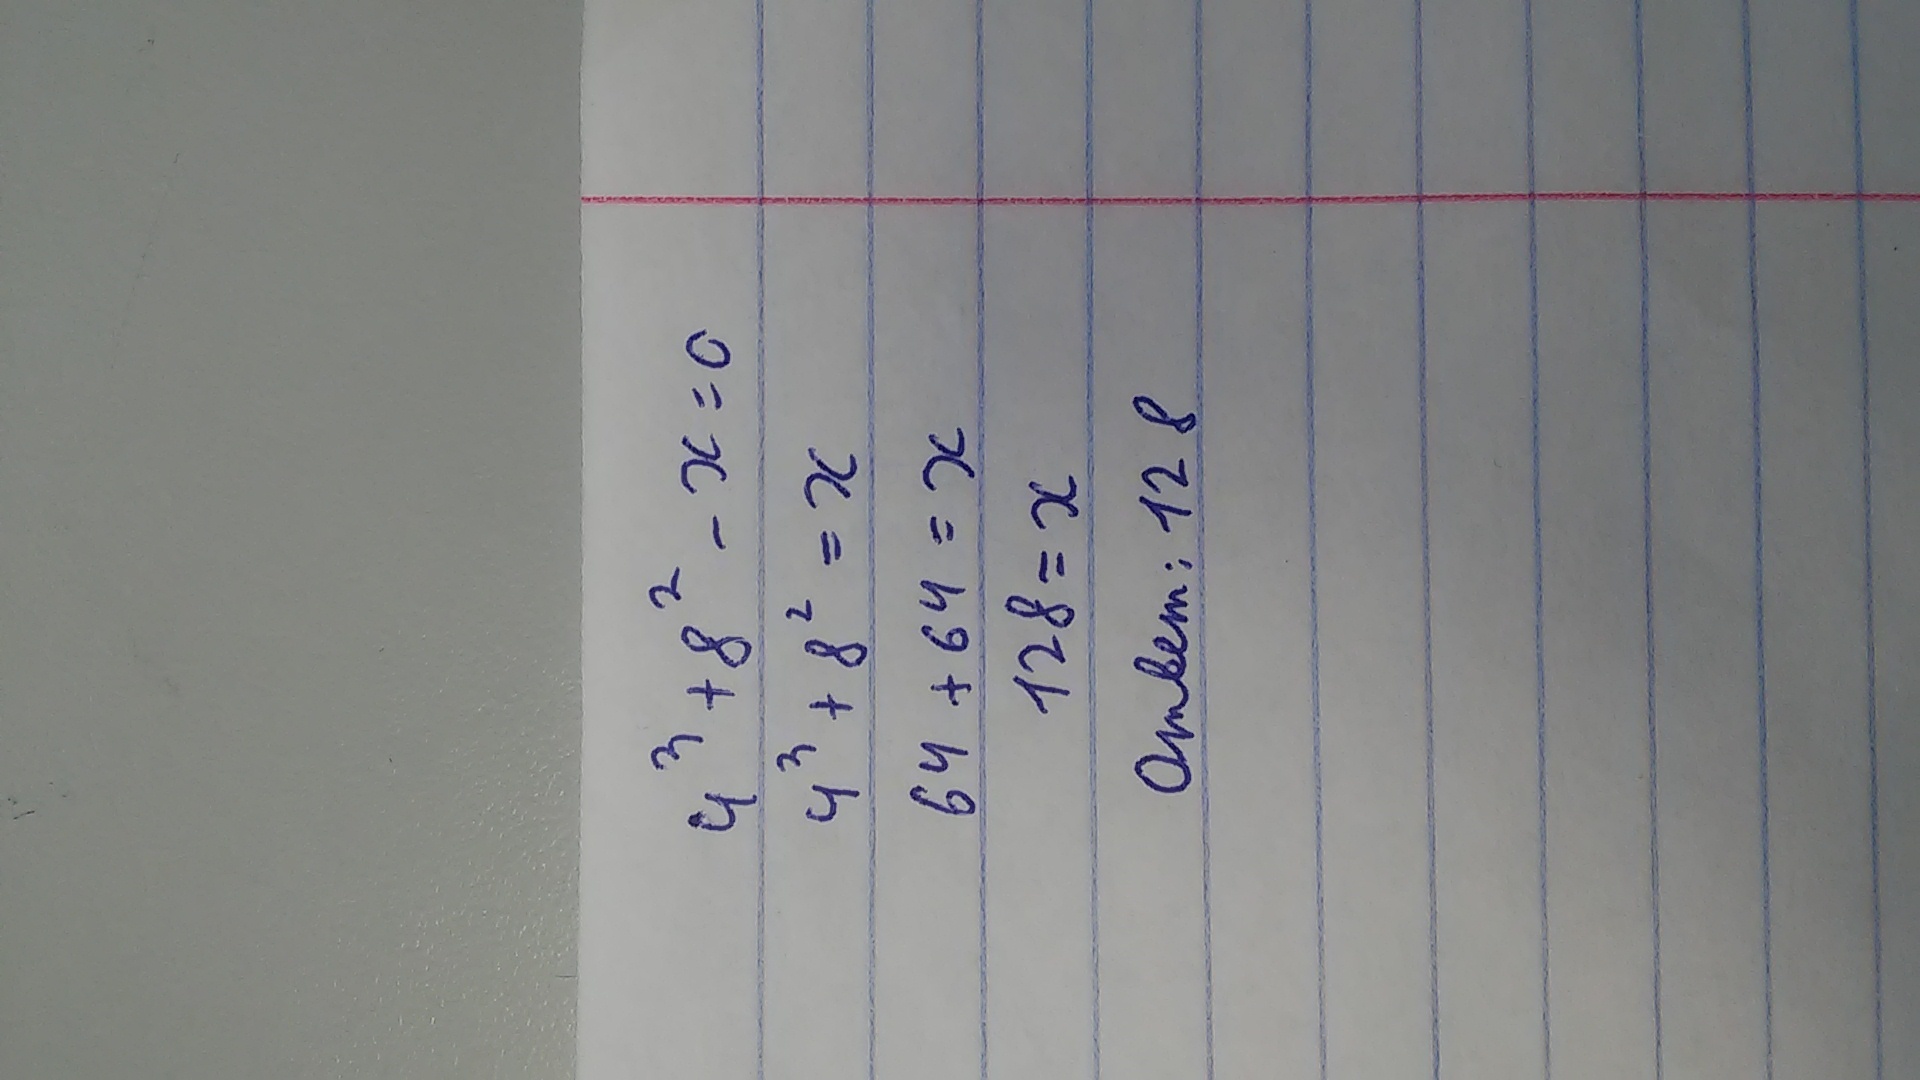 4³ + 8² - x = 0
4³ + 8² = x
64 + 64 = x
128 = x
Ответ: 128